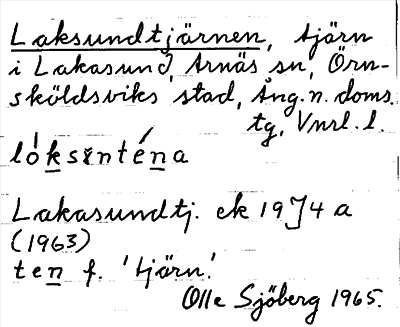 Laksundtjärnen, tjärn
i Lakasund, Arnäs sn, Örn-
sköldsviks stad, Ång. n. doms.
tg, Vnrl. l.
lóksɘnténa
Lakasundtj. ek 19J4 a
(1963)
ten f. 'tjärn'.
Olle Sjöberg 1965.